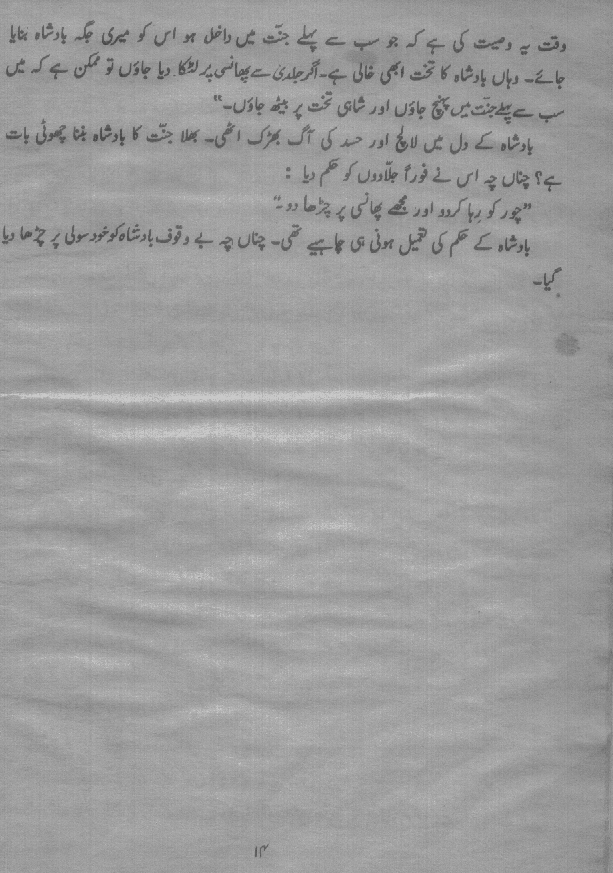 وقت یہ وصیت کی ہے کہ جو سب سے پہلے جنّت میں داخل ہو اس کو میری جگہ بادشاہ بنایا
جائے۔ وہاں بادشاہ کا تخت ابھی خالی ہے۔ اگر جلدی سے پھانسی پر لٹکا دیا جاؤں تو ممکن ہے کہ میں
سب سے پہلے جنّت میں پہنچ جاؤں اور شاہی تخت پر بیٹھ جاؤں۔“
بادشاہ کے دل میں لالچ اور حسد کی آگ بھڑک اٹھی۔ بھلا جنّت کا بادشاہ بننا چھوٹی بات
ہے؟ چناں چہ اس نے فوراً جلّادوں کو حکم دیا :
”چور کو رہا کردو اور مجھے پھانسی پر چڑھا دو۔“
بادشاہ کے حکم کی تعمیل ہونی ہی چاہیے تھی۔ چناں چہ بے وقوف بادشاہ کو خود سولی پر چڑھا دیا
گیا۔
۱۴